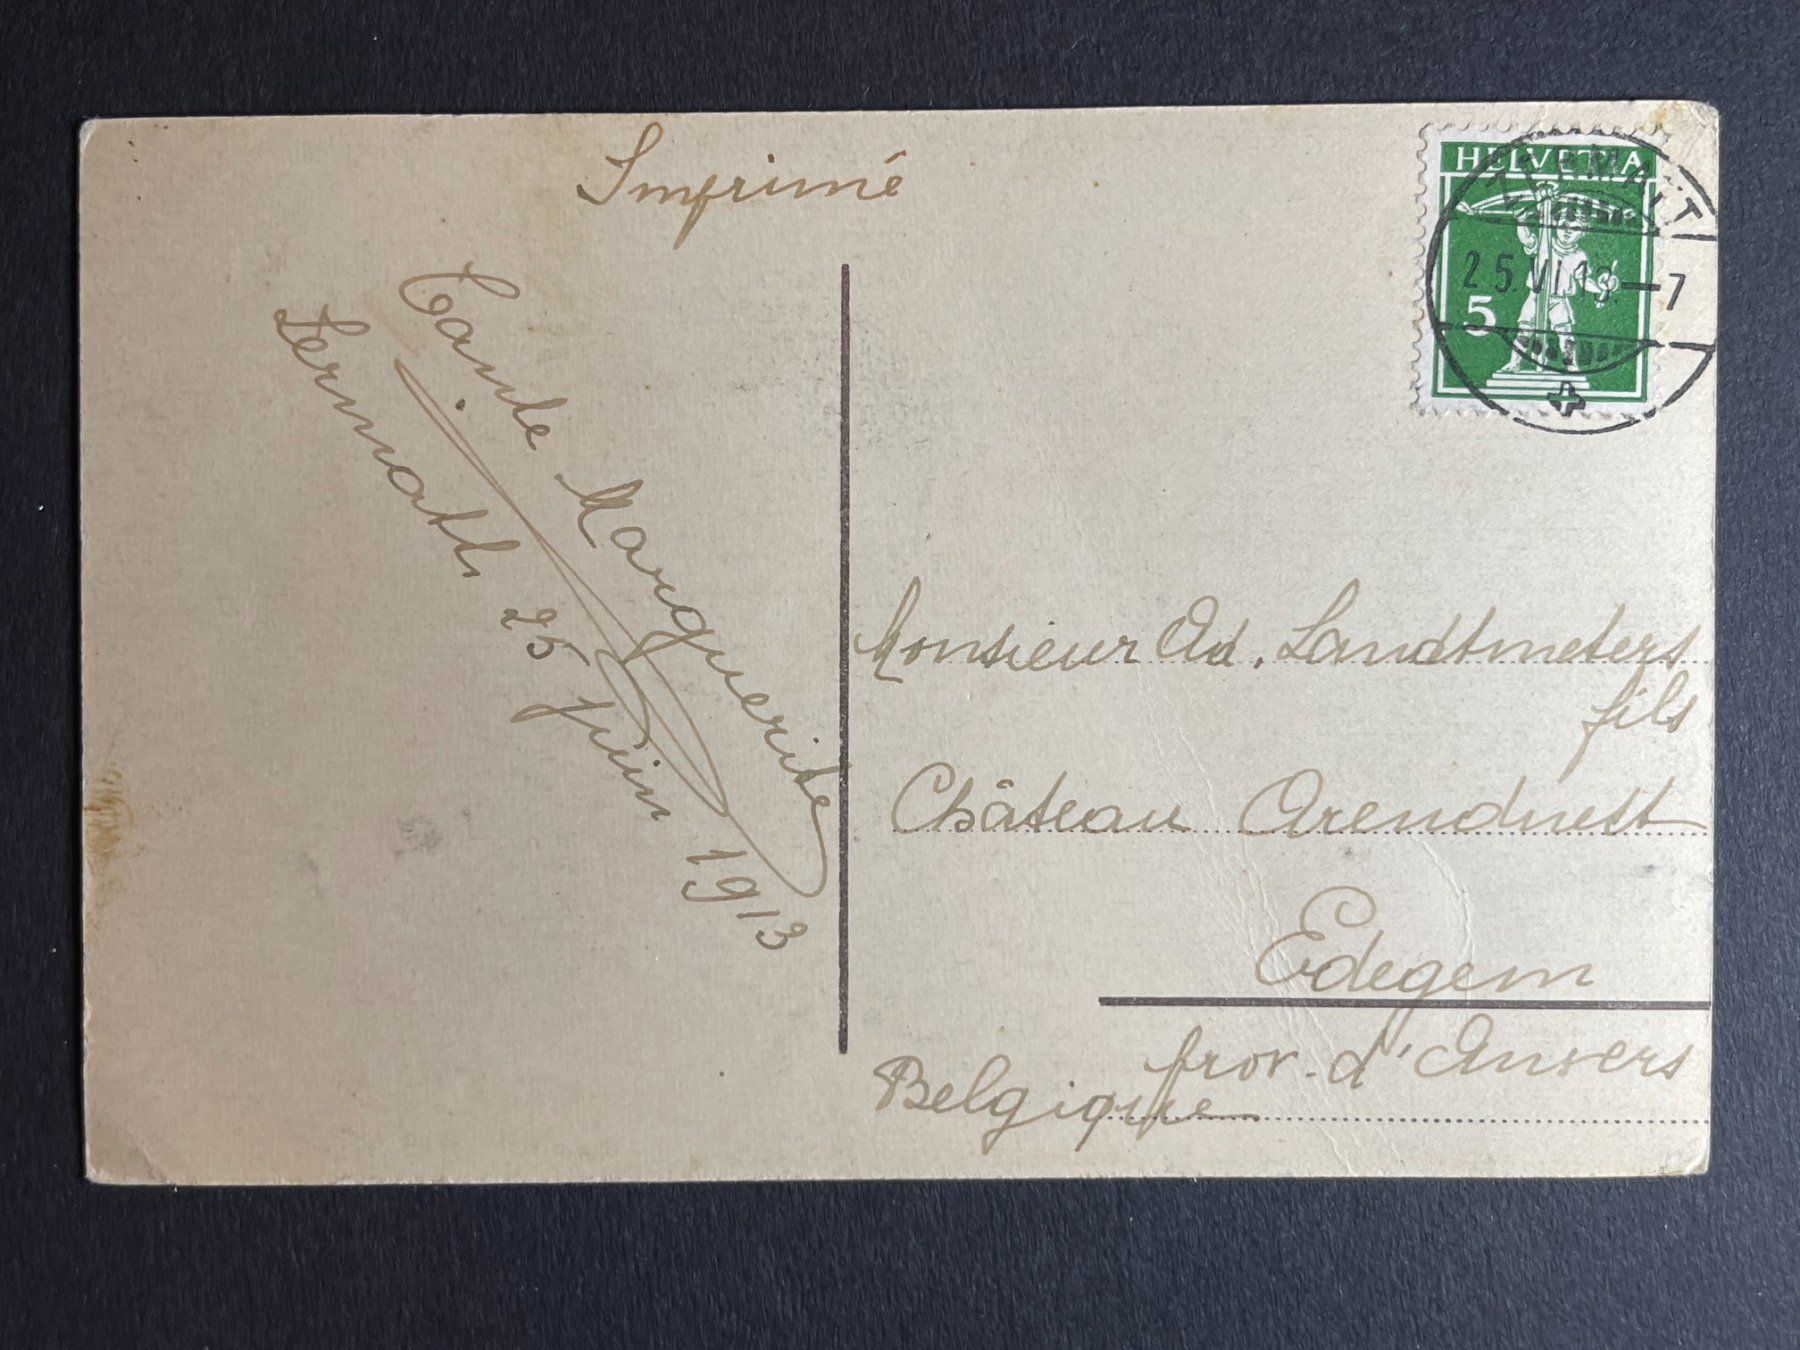 Imprimé
HELVETIA
ZERMATT
25.VI.13.—7
5
Tante Marguerite
Zermatt 25 juin 1913
Monsieur Ad. Landtmeters
fils
Château Arendnest
Edegem
prov. d'Anvers
Belgique